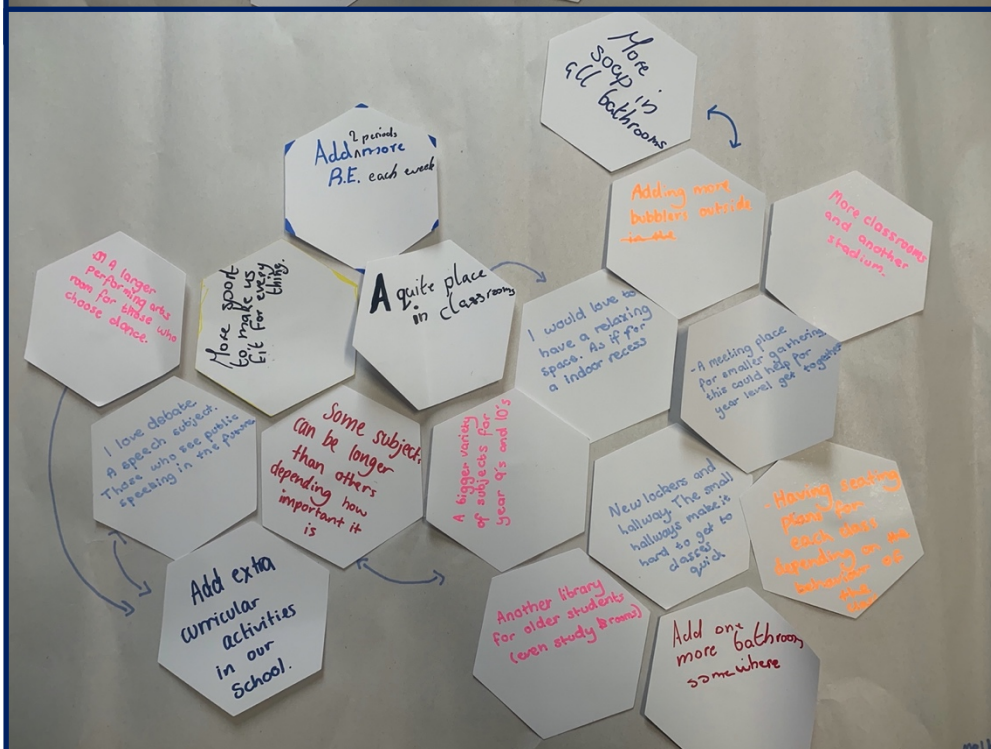 More
soap in
all bathrooms
2 periods
Add ^ more
P.E. each week
Adding more
bubblers outside
in the
More classrooms
and another
stadium.
A larger
performing arts
room for those who
choose dance.
More sport
to make us
fit for every
thing.
A quite place
in classrooms
I would love to
have a relaxing
space. As if for
a indoor recess
- A meeting place
for smaller gathering,
this could help for
year level get together
I love debate
A speech subject.
Those who see public
speaking in the future
Some subjects
can be longer
than others
depending how
important it
is
A bigger variety
of subjects for
year 9's and 10's
New lockers and
hallway. The small
hallways make it
hard to get to
classes
quick
- Having seating
plans for
each class
depending on
behaviour of
the
Add extra
curricular
activities
in our
school.
Another library
for older students
(even study rooms)
Add one
more bathroom
somewhere